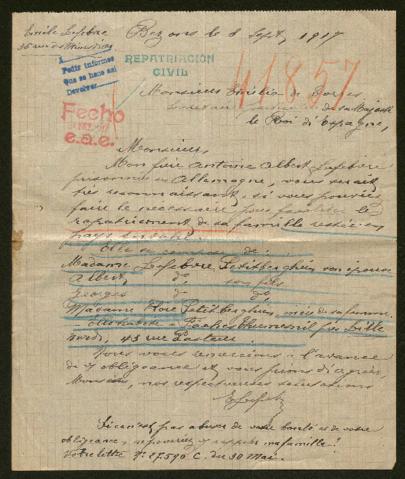 Emile Lefebvre
Bezons le 8 Sept, 1917
A
Pedir informes
Que se hace así
Devolver
REPATRIACIÓN
CIVIL
41857
Fecho
e.a.e.
Monsieur Emilio de
de sa Majesté
le Roi d'Espagne,
Monsieur,
Mon frère Antoine Albert Lefebvre
prisonnier en Allemagne, vous serait
très reconnaissant, si vous pouviez
faire le nécessaire pour faciliter le
rapatriement de sa famille resté en
pays envahi.
Elle se compose de:
Madame Lefebvre Petitberghien son épouse
Albert, do son fils
Georges do do
Madame Petitberghien, mère de sa femme
près Lille
Nord, 43 rue Pasteur
Nous vous remercions à l'avance
de obligeance et vous prions d'agréer
Monsieur, nos respectueuses salutations
E Lefebvre
abuser de votre bonté et de votre
obligeance, ma famille!
Votre lettre 27.590 C. du 30 Mai.